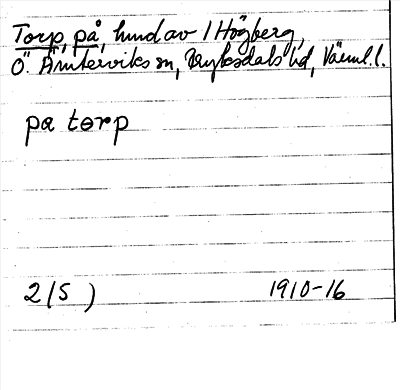 Torp, på, hund av 1 Högberg,
Ö. Ämterviks sn, Fryksdals hd, Värml. l.
pa tɵrp
2(S )
1910-16